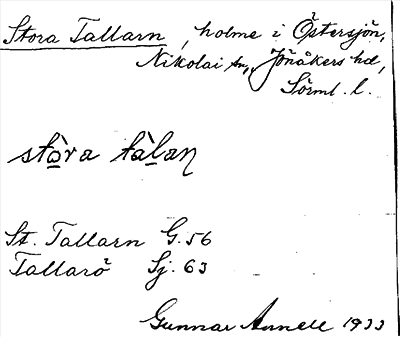 Stora Tallarn, holme i Östersjön,
Nikolai sn, Jönåkers hd,
Sörml. l.
stò̲ra tà̲lan
St. Tallarn G. 56
Tallarö Sj. 63
Gunnar Annell 1933